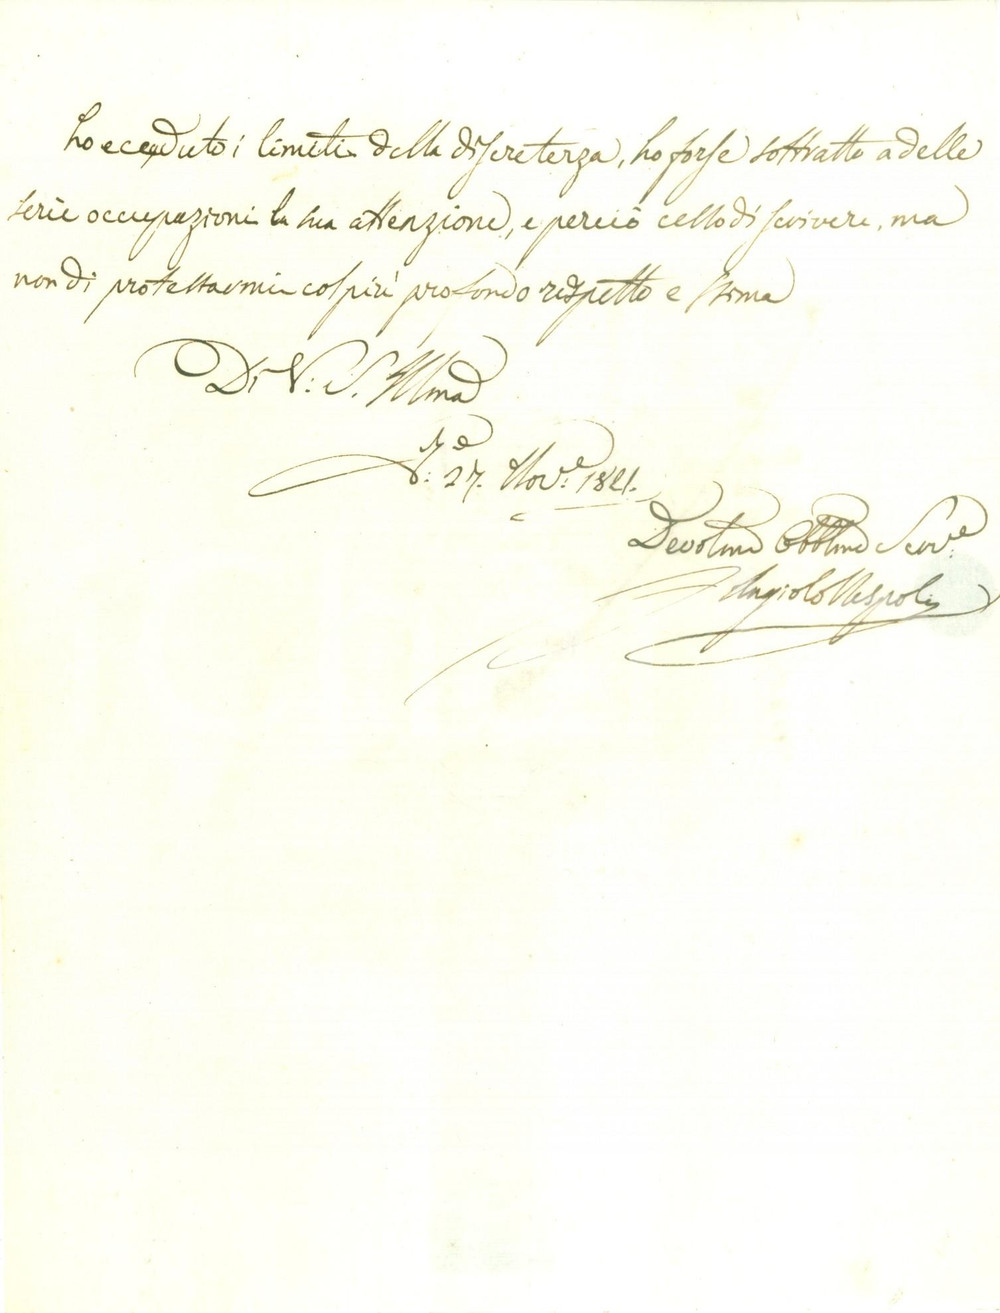 ho ecceduto i limiti della discretezza, ho forse sottratto a delle
serie occupazioni la sua attenzione, e perciò cesso di scrivere, ma
non di protestarmi col più profondo rispetto e stima
Di V: S. Illma
27. Nov.e 1821.
Devotmo Obblmo Serv.e
Angiolo Nespoli